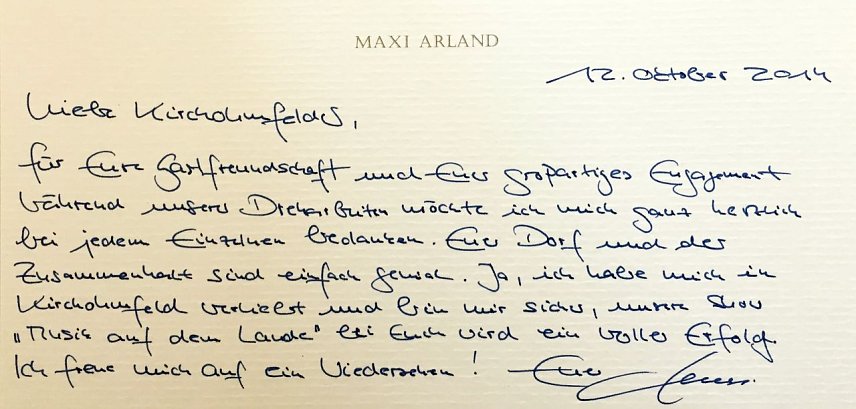 MAXI ARLAND
12. Oktober 2014
Liebe Kirchohmfelder,
für Eure Gastfreundschaft und Euer großartiges Engagement
während unserer Dreharbeiten möchte ich mich ganz herzlich
bei jedem Einzelnen bedanken. Euer Dorf und der
Zusammenhalt sind einfach genial. Ja, ich habe mich in
Kirchohmfeld verliebt und bin mir sicher, unsere Show
„Musik auf dem Lande" bei Euch wird ein voller Erfolg.
Ich freue mich auf ein Wiedersehen! Euer